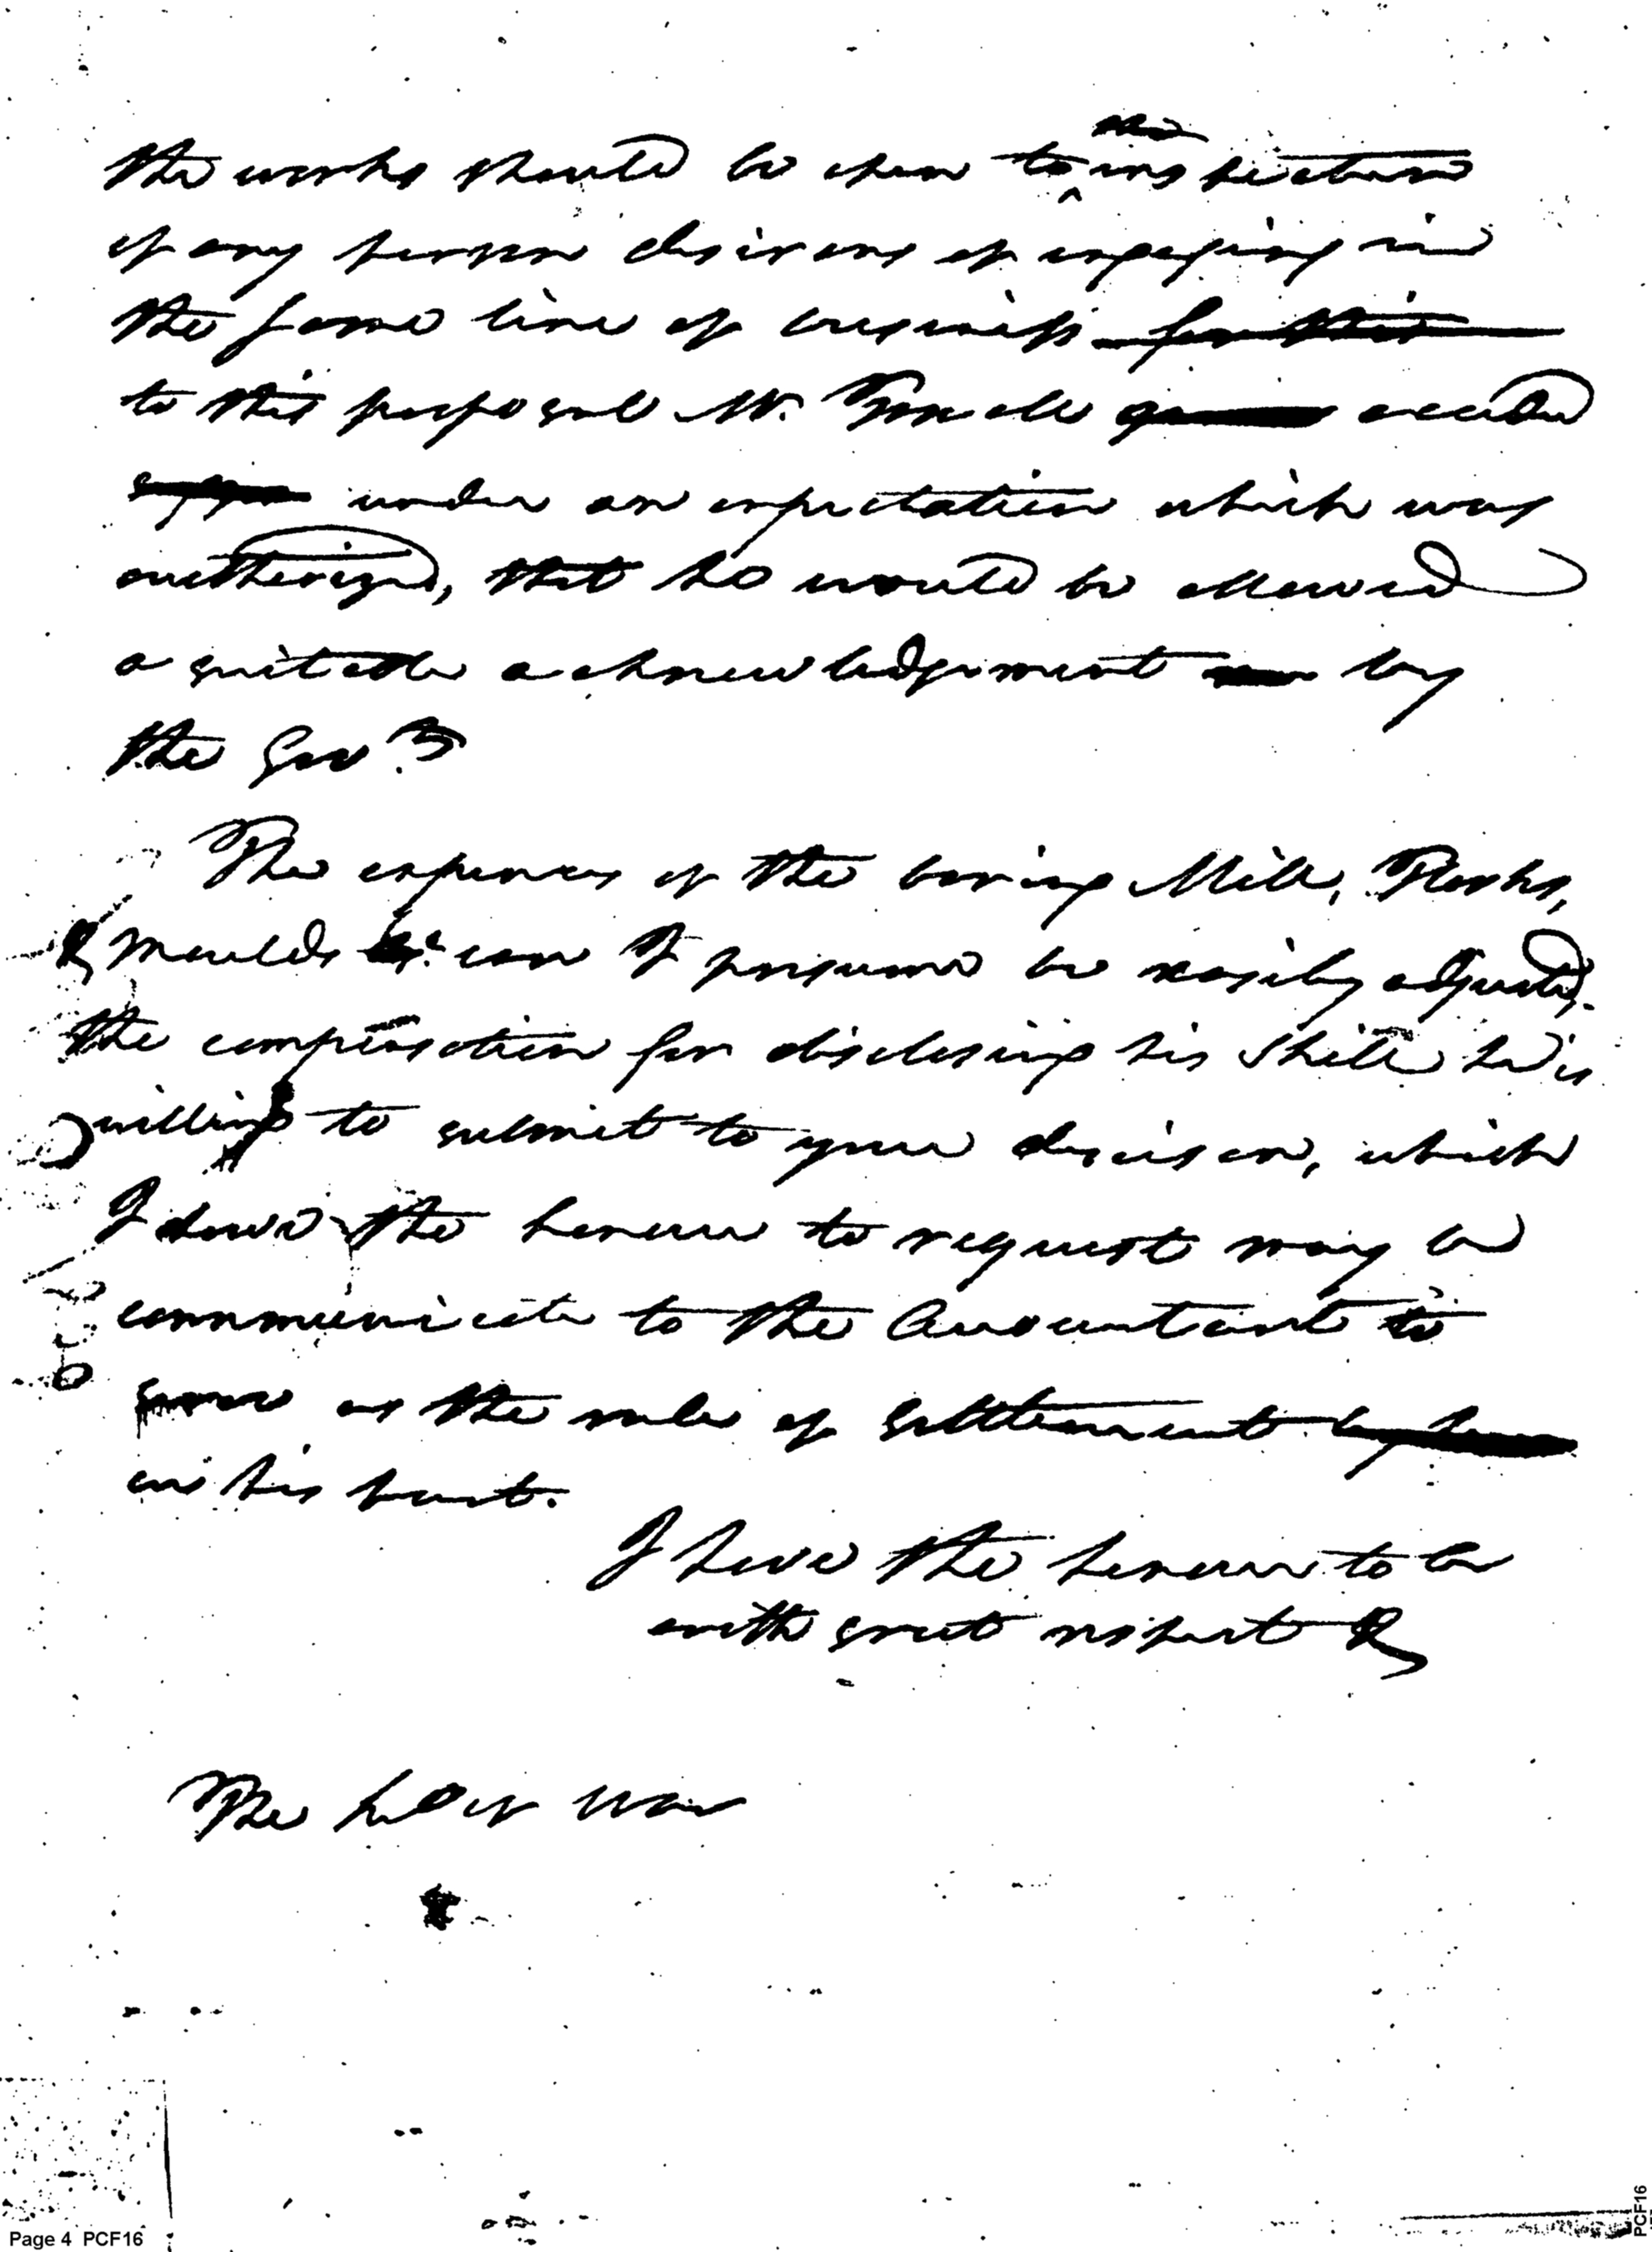 the works should be open to the inspection
of any person desirous of engaging in
the same line of business for this
to this proposal Mr. acceded
under an expectation which was
authorized, that he would be allowed
a suitable acknowledgement by
the Govt
The expences of the boring Mill, Flasks,
& moulds &c can I presume be easily adjusted.
the compensation for disclosing his skill he is
willing to submit to your decision, which
I have the honour to request may be
communicate to the Accountant to
serve as the rule of settlement
on his part.
I have the honour to be
with great respect &
The Sec of War
Page 4 PCF16
PCF16